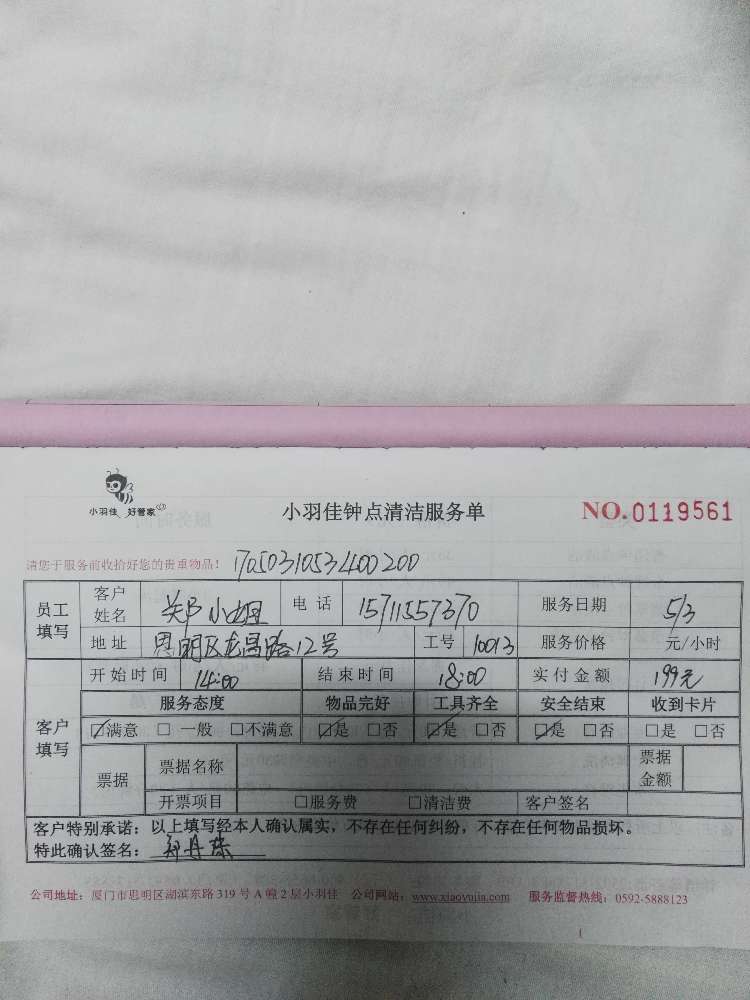 小羽佳 好管家
小羽佳钟点清洁服务单
NO.0119561
请您于服务前收拾好您的贵重物品! 17050310531400200
员工填写 客户姓名 郑小姐 电话 15711557370 服务日期 5/3
地址 思明区龙昌路12号 工号 10013 服务价格 元/小时
客户填写 开始时间 14:00 结束时间 18:00 实付金额 199元
服务态度 物品完好 工具齐全 安全结束 收到卡片
☑满意 □一般 □不满意 ☑是 □否 ☑是 □否 ☑是 □否 □是 □否
票据 票据名称 票据金额
开票项目 □服务费 □清洁费 客户签名
客户特别承诺:以上填写经本人确认属实,不存在任何纠纷,不存在任何物品损坏。
特此确认签名:郑丹珠
公司地址:厦门市思明区湖滨东路319号A幢2层小羽佳 公司网站:www.xiaoyujia.com 服务监督热线:0592-5888123